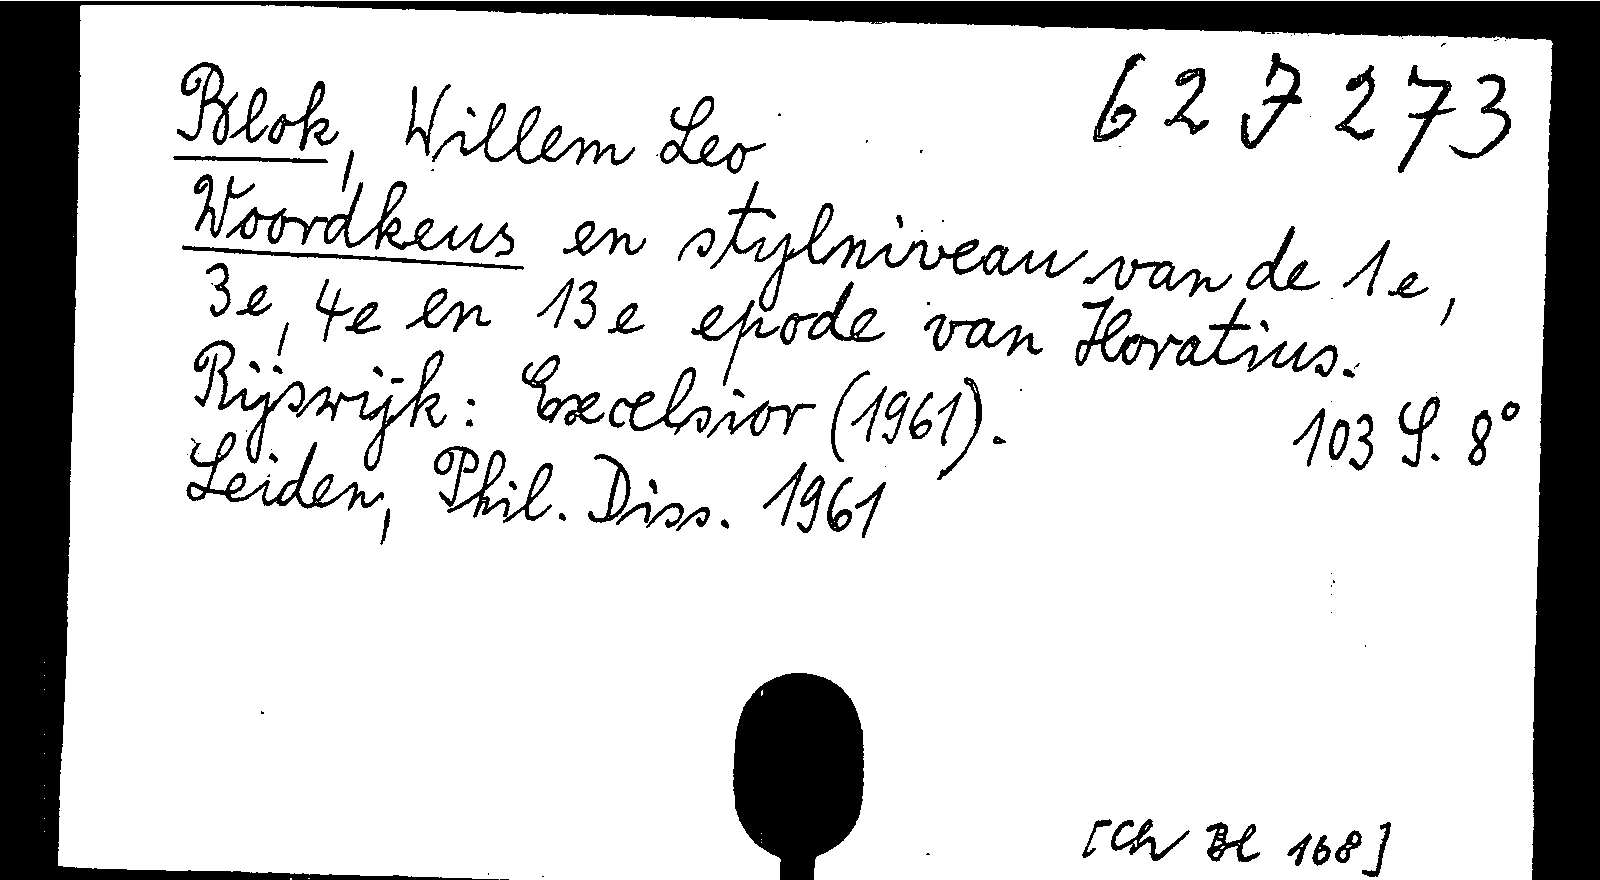 627273
Blok, Willem Leo
Woordkeus en stylniveau van de 1e,
3e, 4e en 13e epode van Horatius.
Rijswijk: Excelsior (1961). 103 S. 8°
Leiden, Phil. Diss. 1961
[Ch Bl 168]